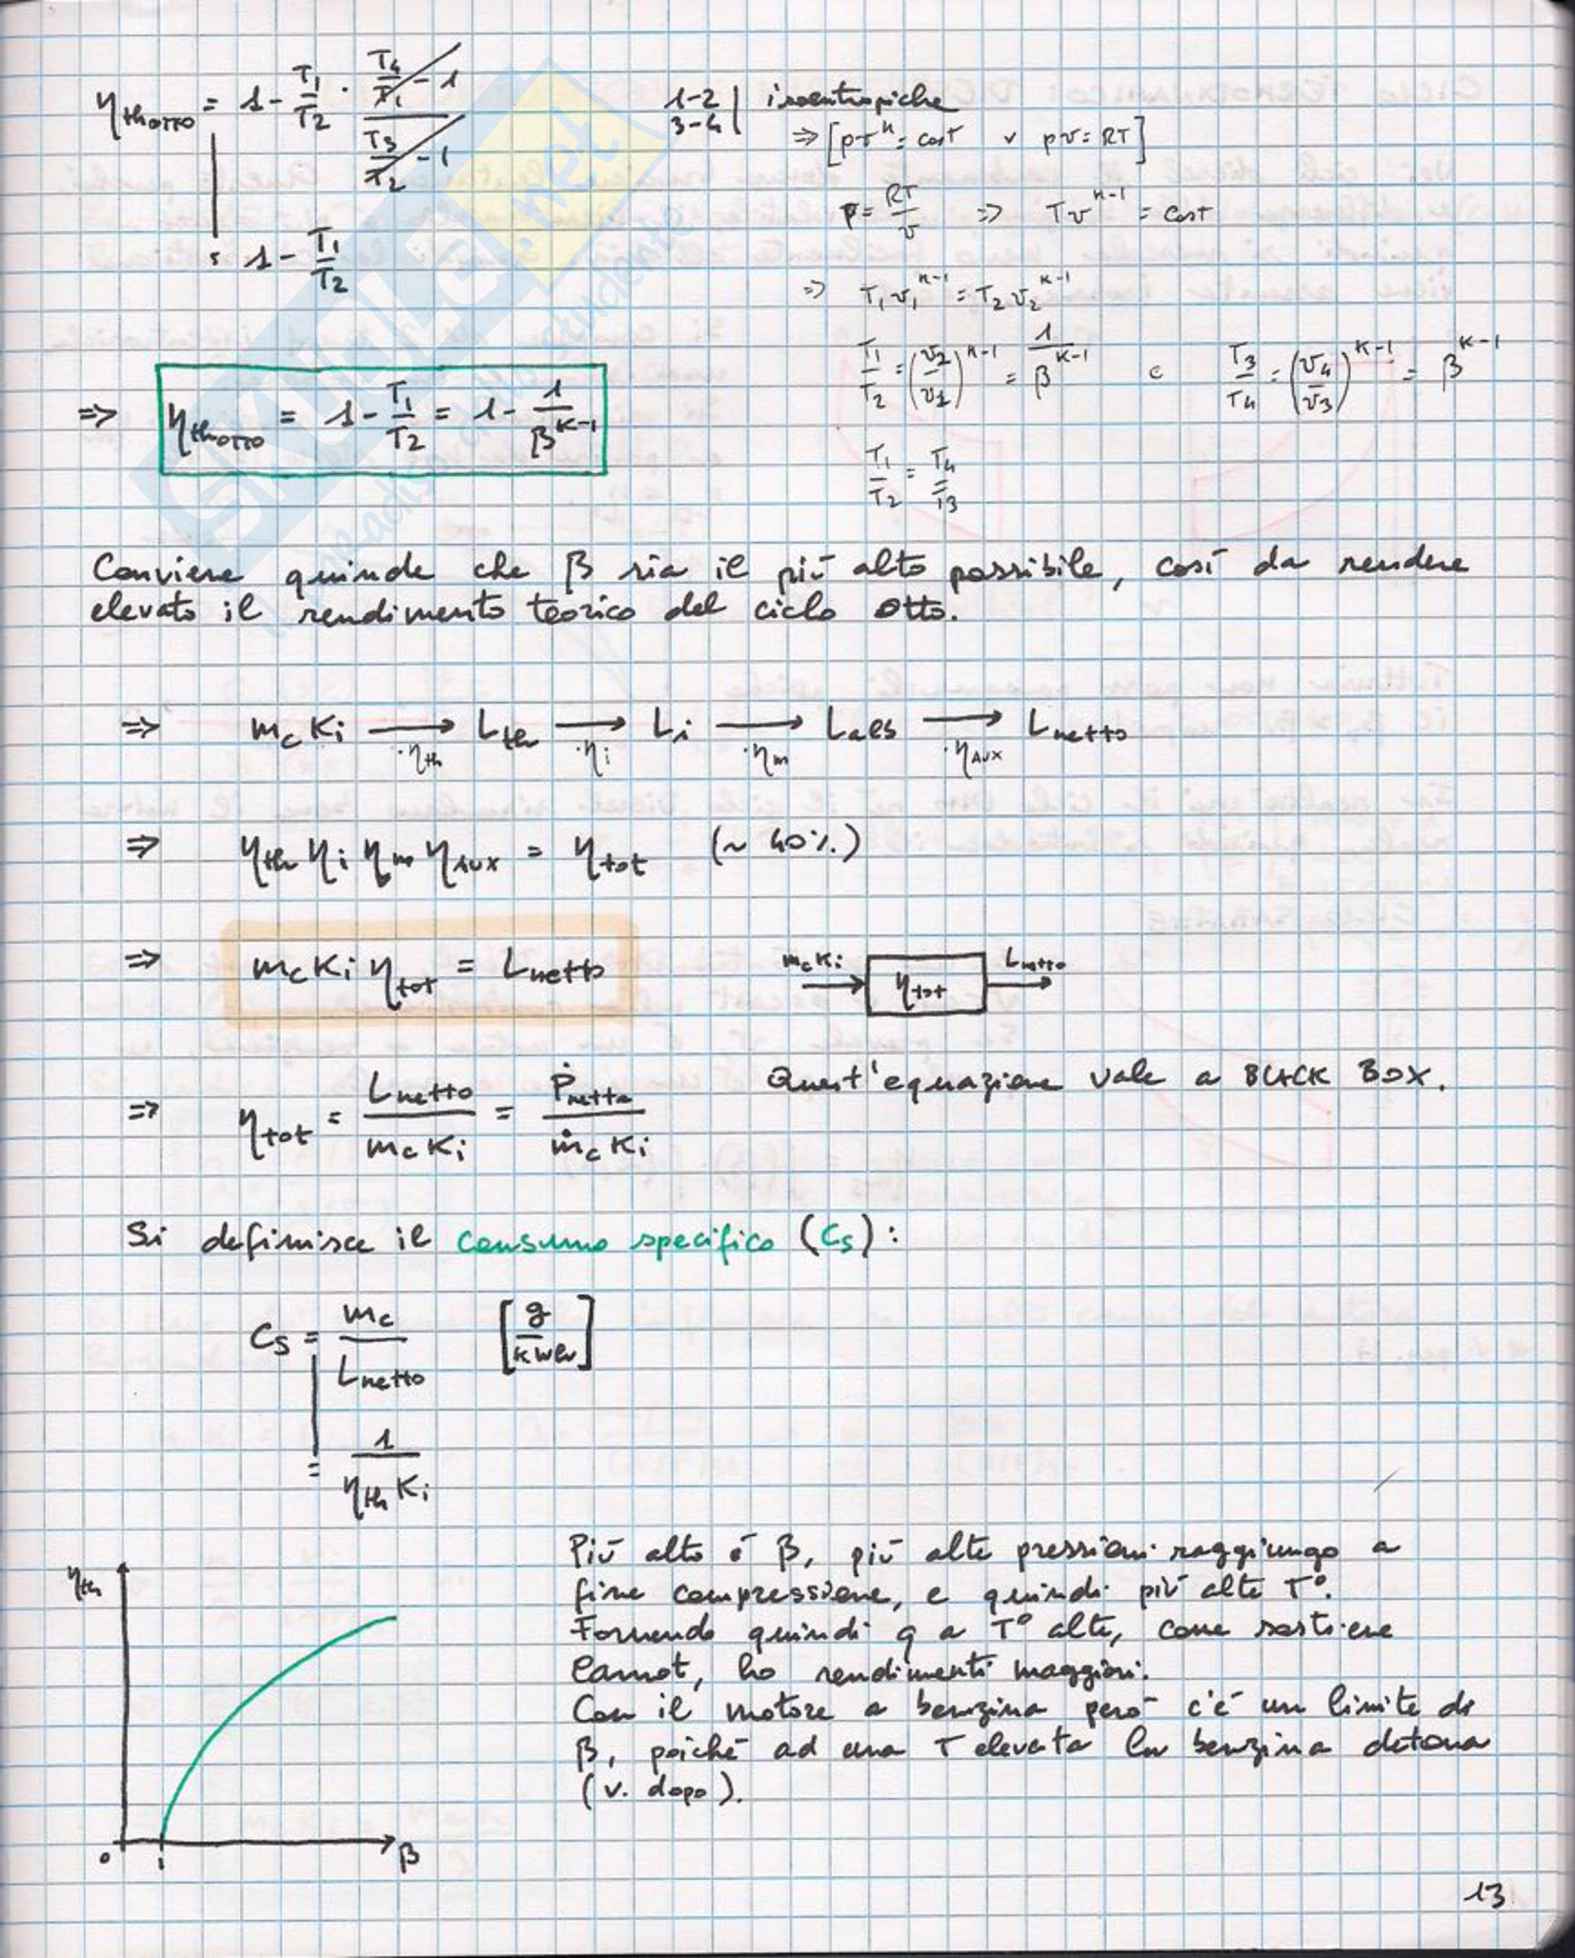 η th OTTO = 1 - T1/T2 · (T4/T1 - 1)/(T3/T2 - 1)
= 1 - T1/T2
1-2 | isoentropiche
3-4 |
⇒ [pv^k = cost ∨ pv = RT]
p = RT/v ⇒ Tv^(k-1) = cost
⇒ T1 v1^(k-1) = T2 v2^(k-1)
T1/T2 = (v2/v1)^(k-1) = 1/β^(k-1) e T3/T4 = (v4/v3)^(k-1) = β^(k-1)
T1/T2 = T4/T3
⇒ η th OTTO = 1 - T1/T2 = 1 - 1/β^(k-1)
Conviene quinde che β sia il più alto possibile, così da rendere
elevato il rendimento teorico del ciclo Otto.
⇒ mc Ki → ·ηth Lth → ·ηi Li → ·ηm Lass → ·ηAUX Lnetto
⇒ ηth ηi ηm ηAUX = ηtot (~ 40%)
⇒ mc Ki ηtot = Lnetto
mc Ki → ηtot → Lnetto
⇒ ηtot = Lnetto/(mc Ki) = Ṗnetta/(ṁc Ki)
Quest'equazione vale a BLACK BOX.
Si definisce il consumo specifico (Cs):
Cs = mc/Lnetto [g/kWh]
= 1/(ηth Ki)
ηth
0 1 β
Più alto è β, più alte pressioni raggiungo a
fine compressione, e quindi più alte T°.
Fornendo quindi q a T° alte, come sostiene
Carnot, ho rendimenti maggiori.
Con il motore a benzina però c'è un limite di
β, poiché ad una T elevata la benzina detona
(v. dopo).
13